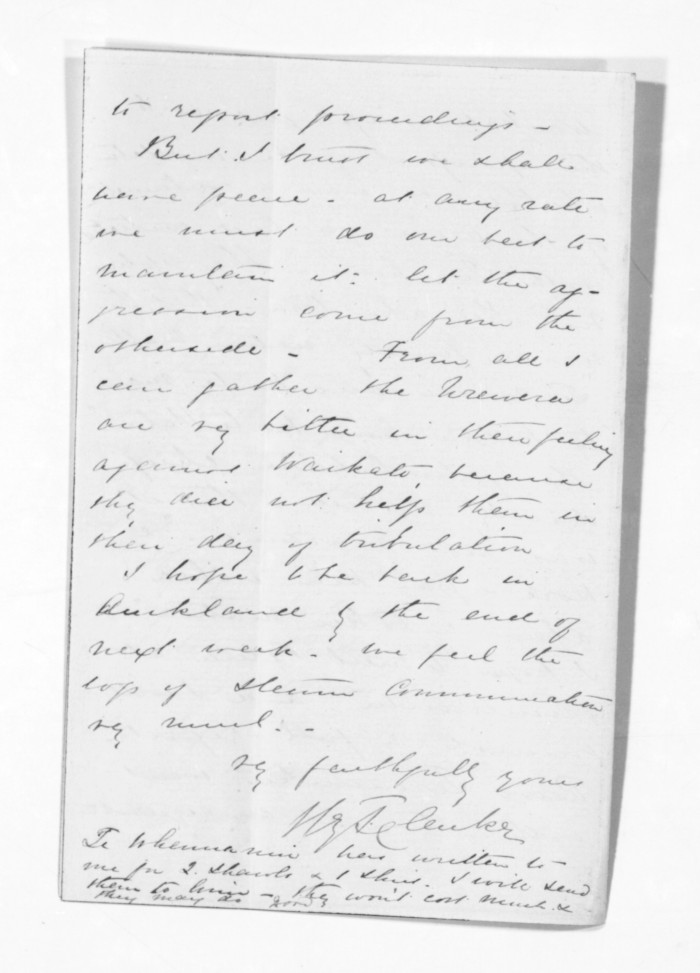 to report proceedings -
But I trust we shall
have peace - at any rate
we must do our best to
maintain it: let the ag-
gression come from the
otherside - From all I
can gather the Urewera
are vy bitter in their feeling
against Waikato, because
they did not help them in
their day of tribulation
I hope to be back in
Auckland by the end of
next week - We feel the
loss of steam communication
vy much. -
vy faithfully yours
Hy T. Clarke
Te Whenuanui has written to
me for 2 shawls & 1 shirt. I will send
them to him - they won't cost much &
they may do good